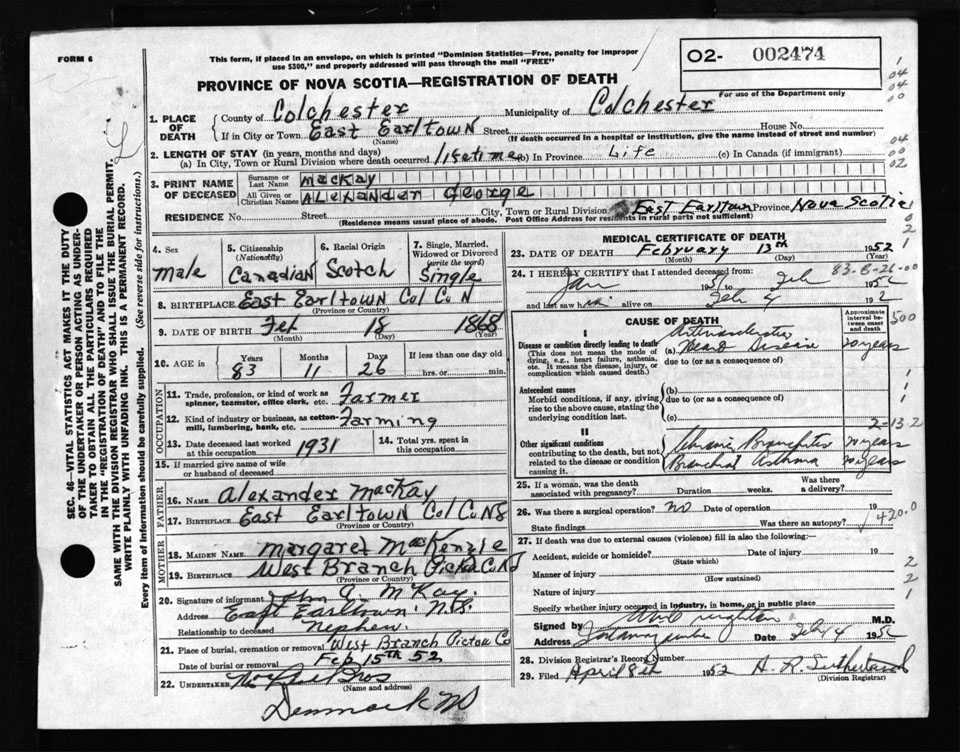 FORM 6
This form, if placed in an envelope, on which is printed "Dominion Statistics—Free, penalty for improper
use $300," and properly addressed will pass through the mail "FREE"
O2- 002474
For use of the Department only
PROVINCE OF NOVA SCOTIA—REGISTRATION OF DEATH
SEC. 46—VITAL STATISTICS ACT MAKES IT THE DUTY
OF THE UNDERTAKER OR PERSON ACTING AS UNDER-
TAKER TO OBTAIN ALL THE PARTICULARS REQUIRED
IN THE "REGISTRATION OF DEATH" AND TO FILE THE
SAME WITH THE DIVISION REGISTRAR WHO SHALL ISSUE THE BURIAL PERMIT.
WRITE PLAINLY WITH UNFADING INK. THIS IS A PERMANENT RECORD.
Every item of Information should be carefully supplied. (See reverse side for instructions.)
1. PLACE OF DEATH
County of Colchester Municipality of Colchester
If in City or Town East Earltown Street House No.
(Name) (If death occurred in a hospital or institution, give the name instead of street and number)
2. LENGTH OF STAY (in years, months and days)
(a) In City, Town or Rural Division where death occurred lifetime (b) In Province Life (c) In Canada (if immigrant)
3. PRINT NAME OF DECEASED
Surname or Last Name MacKay
All Given or Christian Names Alexander George
RESIDENCE No. Street City, Town or Rural Division East Earltown Province Nova Scotia
(Residence means usual place of abode. Post Office Address for residents in rural parts not sufficient)
4. Sex Male
5. Citizenship (Nationality) Canadian
6. Racial Origin Scotch
7. Single, Married, Widowed or Divorced (write the word) Single
8. BIRTHPLACE East Earltown Col Co N
(Province or Country)
9. DATE OF BIRTH Feb 18 1868
(Month) (Day) (Year)
10. AGE Years 83 Months 11 Days 26 If less than one day old hrs. or min.
OCCUPATION
11. Trade, profession, or kind of work as spinner, teamster, office clerk, etc. Farmer
12. Kind of industry or business, as cotton-mill, lumbering, bank, etc. Farming
13. Date deceased last worked at this occupation 1931
14. Total yrs. spent in this occupation
15. If married give name of wife or husband of deceased
FATHER
16. NAME Alexander MacKay
17. BIRTHPLACE East Earltown Col Co NS
(Province or Country)
MOTHER
18. MAIDEN NAME Margaret MacKenzie
19. BIRTHPLACE West Branch Pictou Co NS
(Province or Country)
20. Signature of informant John G. McKay
Address East Earltown N.S.
Relationship to deceased nephew
21. Place of burial, cremation or removal West Branch Pictou Co
Date of burial or removal Feb 15th 52
22. UNDERTAKER Bros
(Name and address)
Denmark NS
MEDICAL CERTIFICATE OF DEATH
23. DATE OF DEATH February 13th 1952
(Month) (Day)
24. I HEREBY CERTIFY that I attended deceased from:
Jan 1951 to Feb 1952
83-B-26-00
and last saw him alive on Feb 4 1952
CAUSE OF DEATH
Approximate interval between onset and death
I
Disease or condition directly leading to death
(This does not mean the mode of dying, e.g., heart failure, asthenia, etc. It means the disease, injury, or complication which caused death.)
(a) Heart Disease 20 years
due to (or as a consequence of)
Antecedent causes
Morbid conditions, if any, giving rise to the above cause, stating the underlying condition last.
(b)
due to (or as a consequence of)
(c)
2-13-2
II
Other significant conditions contributing to the death, but not related to the disease or condition causing it.
Chronic Bronchitis 20 years
Bronchial Asthma 20 years
25. If a woman, was the death associated with pregnancy? Duration weeks. Was there a delivery?
26. Was there a surgical operation? no Date of operation 19
State findings Was there an autopsy?
420.0
27. If death was due to external causes (violence) fill in also the following:—
Accident, suicide or homicide? Date of injury 19
(State which)
Manner of injury
(How sustained)
Nature of injury
Specify whether injury occurred in industry, in home, or in public place
Signed by M.D.
Address Tatamagouche Date Feb 14 1952
28. Division Registrar's Record Number
29. Filed April 8th 1952 H. R. Sutherland
(Division Registrar)